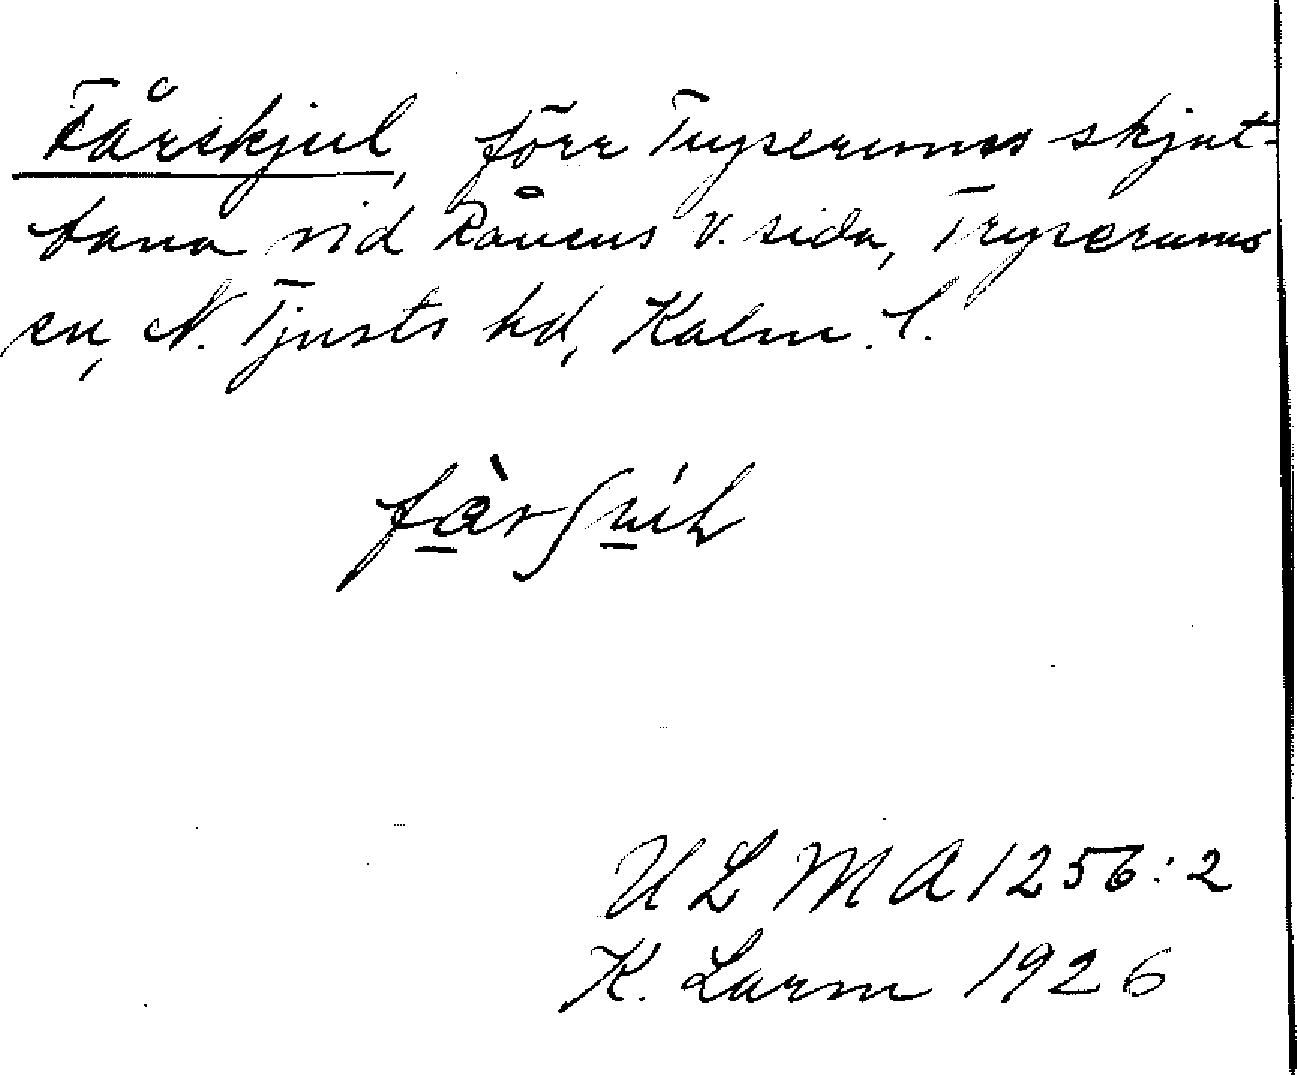 Fårskjul, förr Tryserums skjut-
bana vid Råucus v. sida, Tryserums
sn, N. Tjusts hd, Kalm. l.
ULMA 1256:2
K. Larm 1926